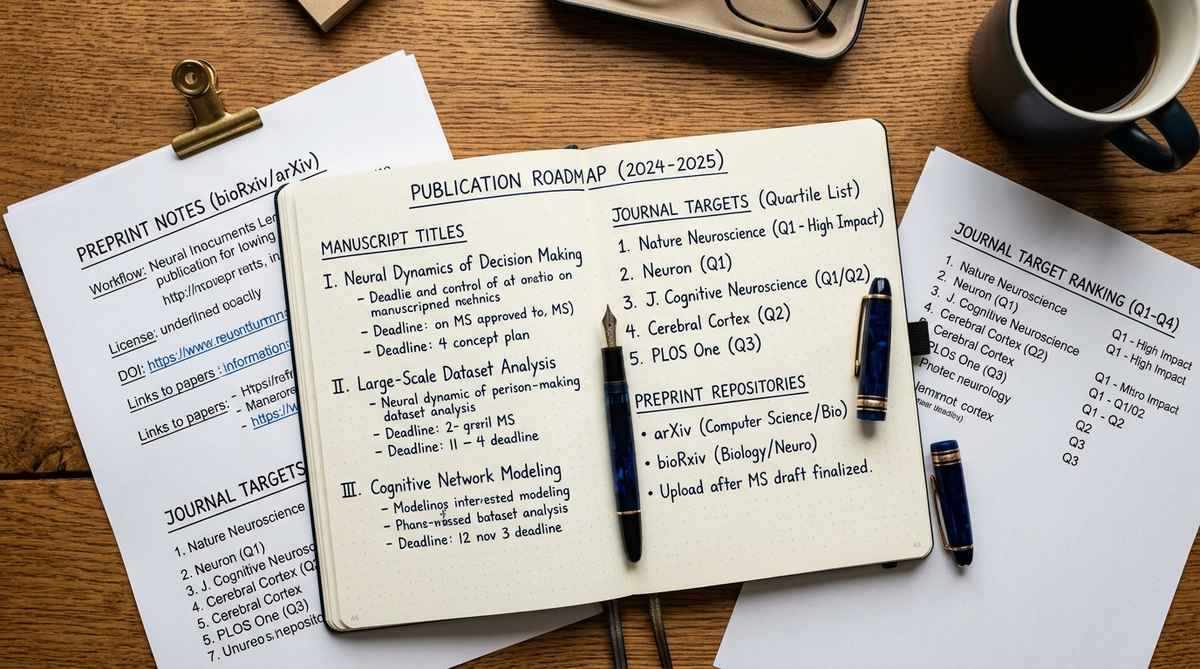 PREPRINT NOTES (bioRxiv/arXiv)
Workflow: Neural Inocuments Ler
publication for lowing
License: underlined ooaclly
DOI: https://www.reuontturmn
Links to papers :informations
Links to papers:
https://w
JOURNAL TARGETS
1. Nature Neuroscience
2. Neuron (Q1)
3. J. Cognitive Neurosc
4. Cerebral Cortex (Q2)
5. Cerebral Cortex
6. PLOS One (Q3)
7. Unureo
PUBLICATION ROADMAP (2024-2025)
MANUSCRIPT TITLES
I. Neural Dynamics of Decision Making
- Deadlie and control of at onatio on
manuscripned
- Deadline: on MS approved to, MS)
- Deadline: 4 concept plan
II. Large-Scale Dataset Analysis
- Neural dynamic of perison-making
dataset analysis
- Deadline: 2- greril MS
- Deadline: 11 - 4 deadline
III. Cognitive Network Modeling
- Modelinos interested modeling
- bataset analysis
- Deadline: 12 nov 3 deadline
JOURNAL TARGETS (Quartile List)
1. Nature Neuroscience (Q1 - High Impact)
2. Neuron (Q1)
3. J. Cognitive Neuroscience (Q1/Q2)
4. Cerebral Cortex (Q2)
5. PLOS One (Q3)
PREPRINT REPOSITORIES
• arXiv (Computer Science/Bio)
• bioRxiv (Biology/Neuro)
• Upload after MS draft finalized.
JOURNAL TARGET RANKING (Q1-Q4)
1. Nature Neuroscience Q1 - High Impact
2. Neuron (Q1) Q1 - High Impact
3. J. Cognitive Neuroscience
4. Cerebral Cortex (Q2) Q1 - Mitro Impact
Cerebral Cortex Q1 - Q1/02
PLOS One (Q3) Q1 - Q2
Photec neurology Q2
lemmot cortex Q3
Q3